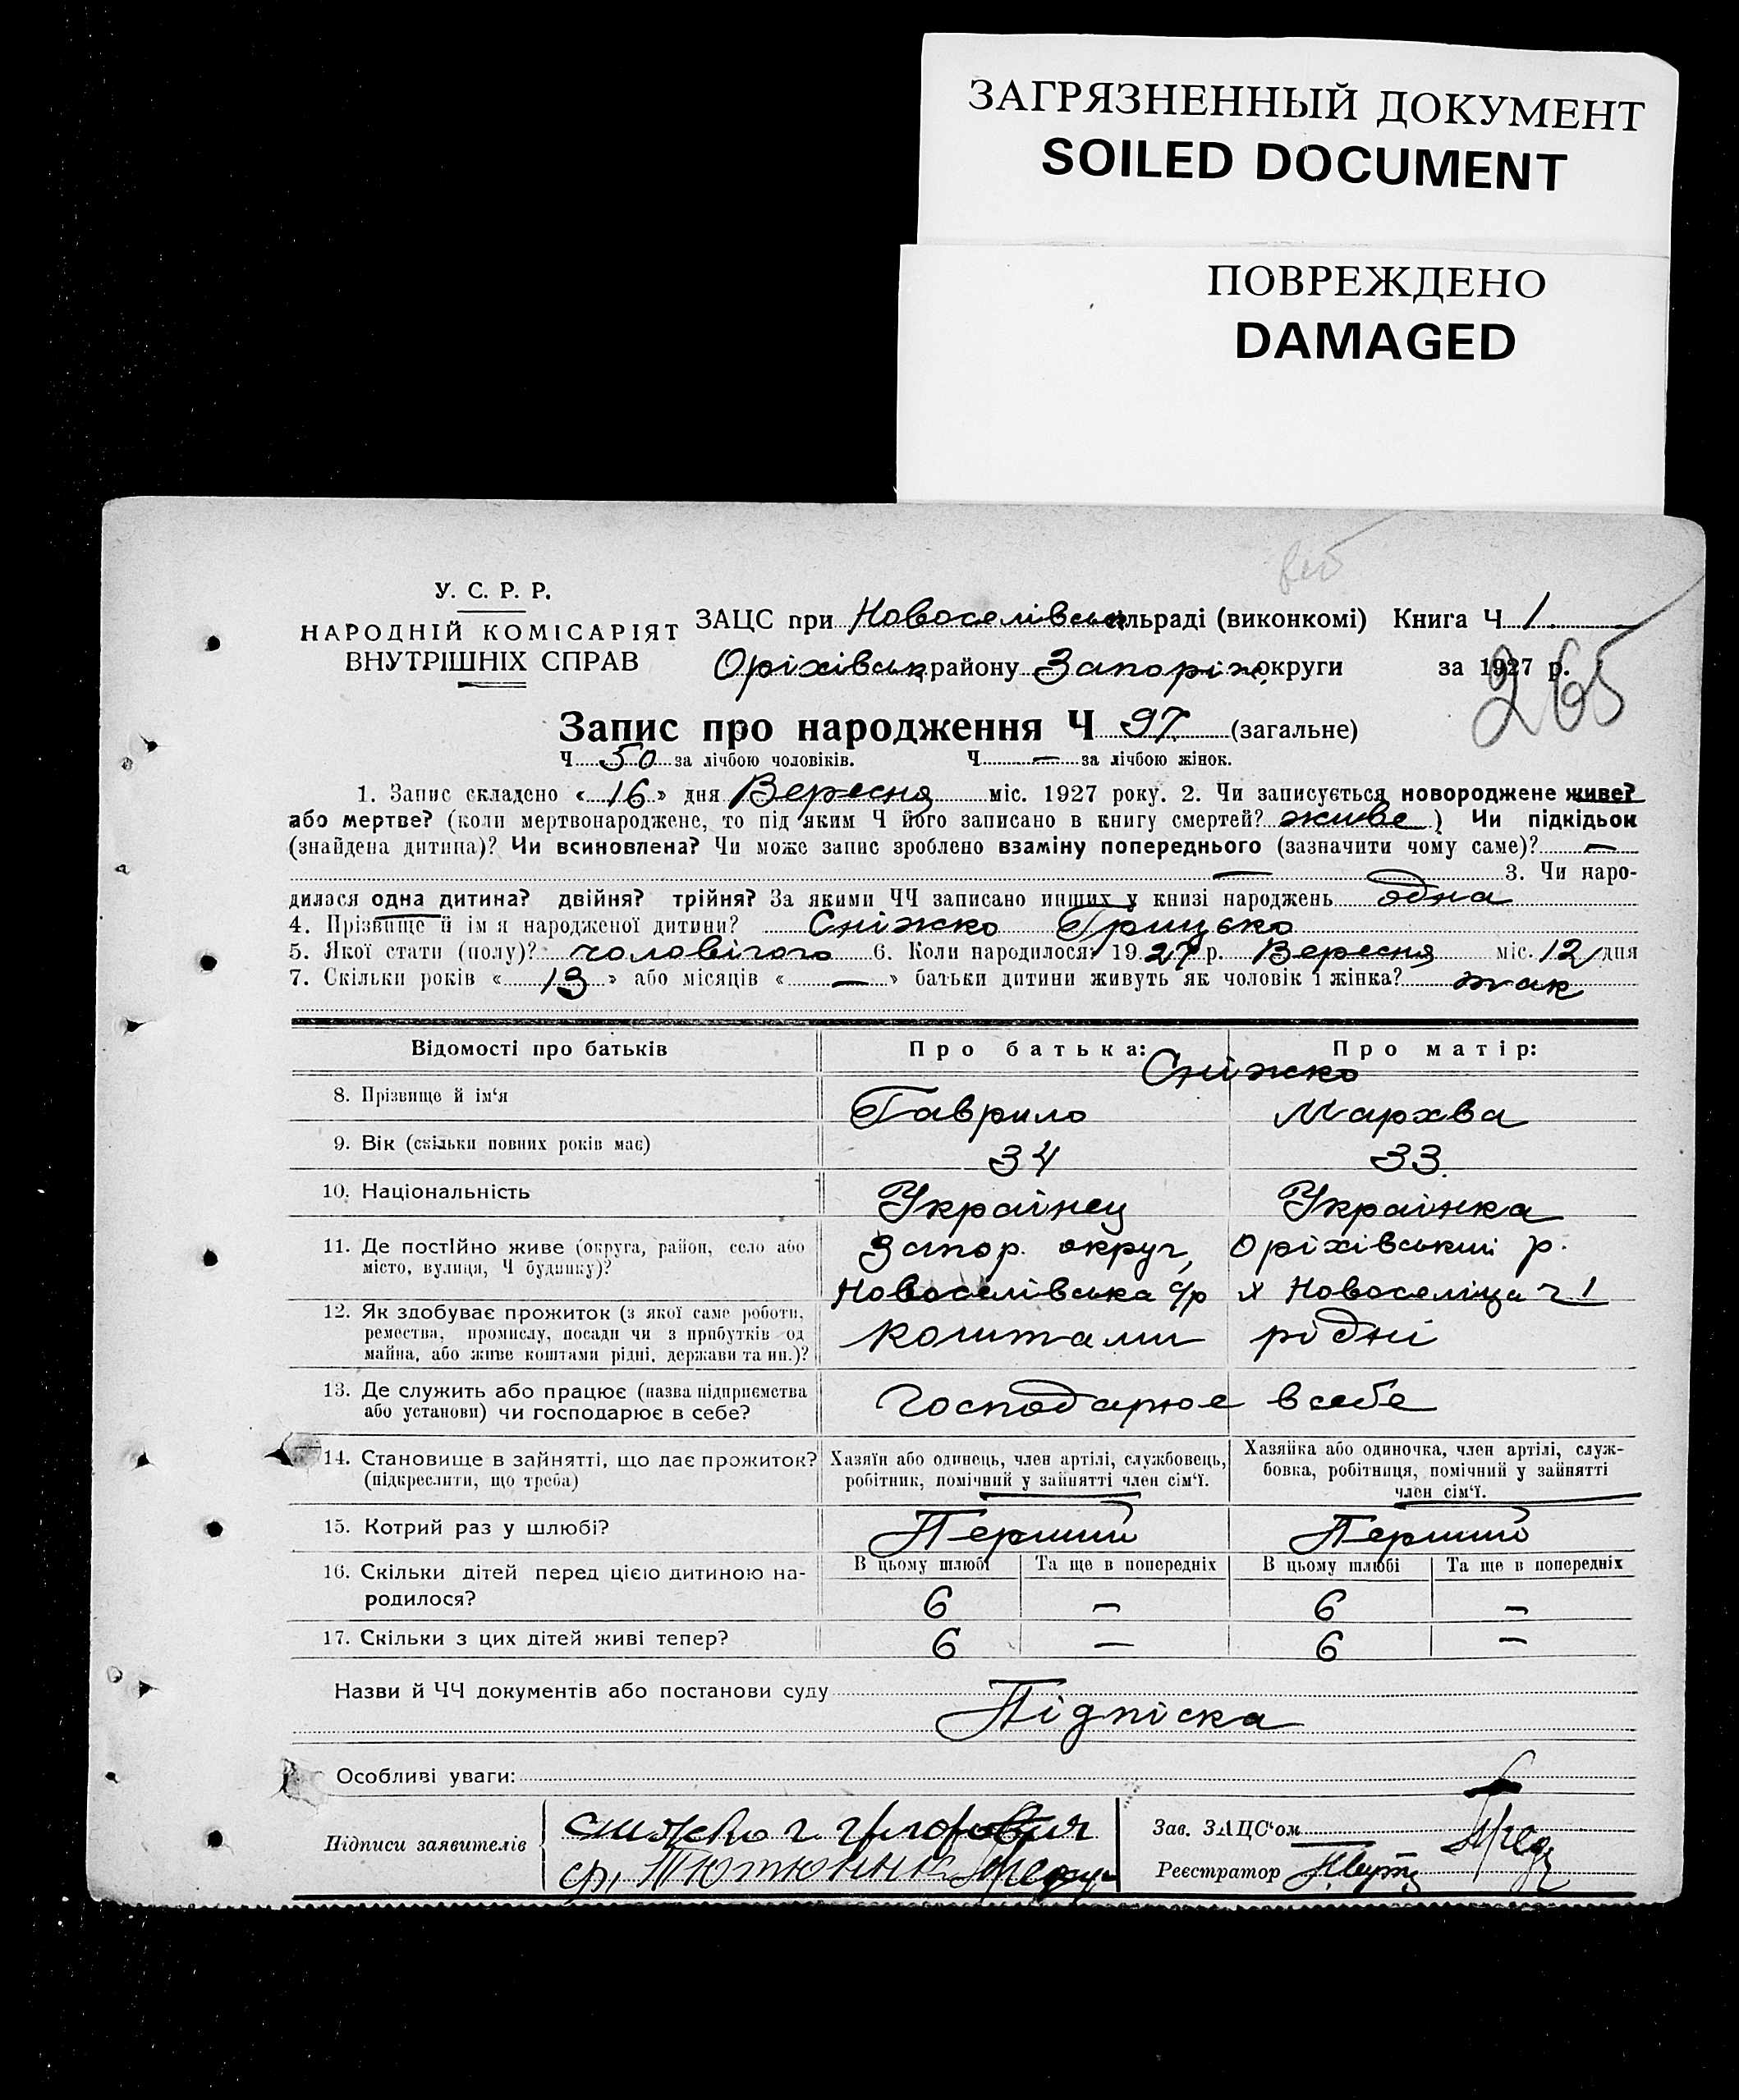 ЗАГРЯЗНЕННЫЙ ДОКУМЕНТ
SOILED DOCUMENT
ПОВРЕЖДЕНО
DAMAGED
У. С. Р. Р.
НАРОДНІЙ КОМІСАРІЯТ
ВНУТРІШНІХ СПРАВ
ЗАЦС при Новоселівськ ильраді (виконкомі) Книга Ч 1.
Оріхівськ району Запоріж. округи за 1927 р.
265
Запис про народження Ч 97. (загальне)
Ч 50 за лічбою чоловіків. Ч — за лічбою жінок.
1. Запис складено « 16 » дня Вересня міс. 1927 року. 2. Чи записується новороджене живе?
або мертве? (коли мертвонароджене, то під яким Ч його записано в книгу смертей? живе ) Чи підкідьок
(знайдена дитина)? Чи всиновлена? Чи може запис зроблено взаміну попереднього (зазначити чому саме)? —
— 3. Чи наро-
дилася одна дитина? двійня? трійня? За якими ЧЧ записано инших у книзі народжень одна
4. Прізвище й ім я народженої дитини? Сніжко Грицько
5. Якої стати (полу)? чоловічого 6. Коли народилося? 1927 р. Вересня міс. 12 дня
7. Скільки років « 13 » або місяців « — » батьки дитини живуть як чоловік і жінка? так
Відомості про батьків Про батька: Про матір:
Сніжко
8. Прізвище й ім'я Гаврило Мархва
9. Вік (скільки повних років має) 34 33.
10. Національність Українец Українка
11. Де постІйно живе (округа, район, село або Запор. округ, Оріхівський р.
місто, вулиця, Ч будинку)? Новоселівська с/р х Новоселіца ч 1
12. Як здобуває прожиток (з якої саме роботи, коштами рідні
ремества, промислу, посади чи з прибутків од
майна, або живе коштами рідні, держави та ин.)?
13. Де служить або працює (назва підприємства Господарює в себе
або установи) чи господарює в себе?
14. Становище в зайнятті, що дає прожиток? Хазяїн або одинець, член артілі, службовець, Хазяйка або одиночка, член артілі, служ-
(підкреслити, що треба) робітник, помічний у зайнятті член сім'ї. бовка, робітниця, помічний у зайнятті
член сім'ї.
15. Котрий раз у шлюбі? Перший Перший
В цьому шлюбі Та ще в попередніх В цьому шлюбі Та ще в попередніх
16. Скільки дітей перед цією дитиною на-
родилося? 6 — 6 —
17. Скільки з цих дітей живі тепер? 6 — 6 —
Назви й ЧЧ документів або постанови суду
Підпіска
Особливі уваги:
Підписи заявителів
Зав. ЗАЦС'ом
Реєстратор